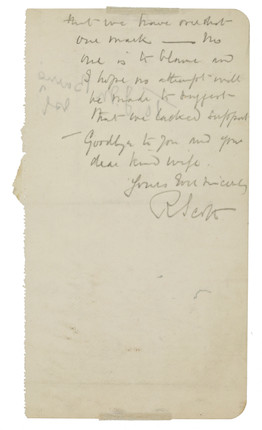 that we have overshot
our mark — No
one is to blame and
I hope no attempt will
be made to suggest
that we lacked support
— Goodbye to you and your
dear kind wife.
Yours Ever sincerely
R Scott